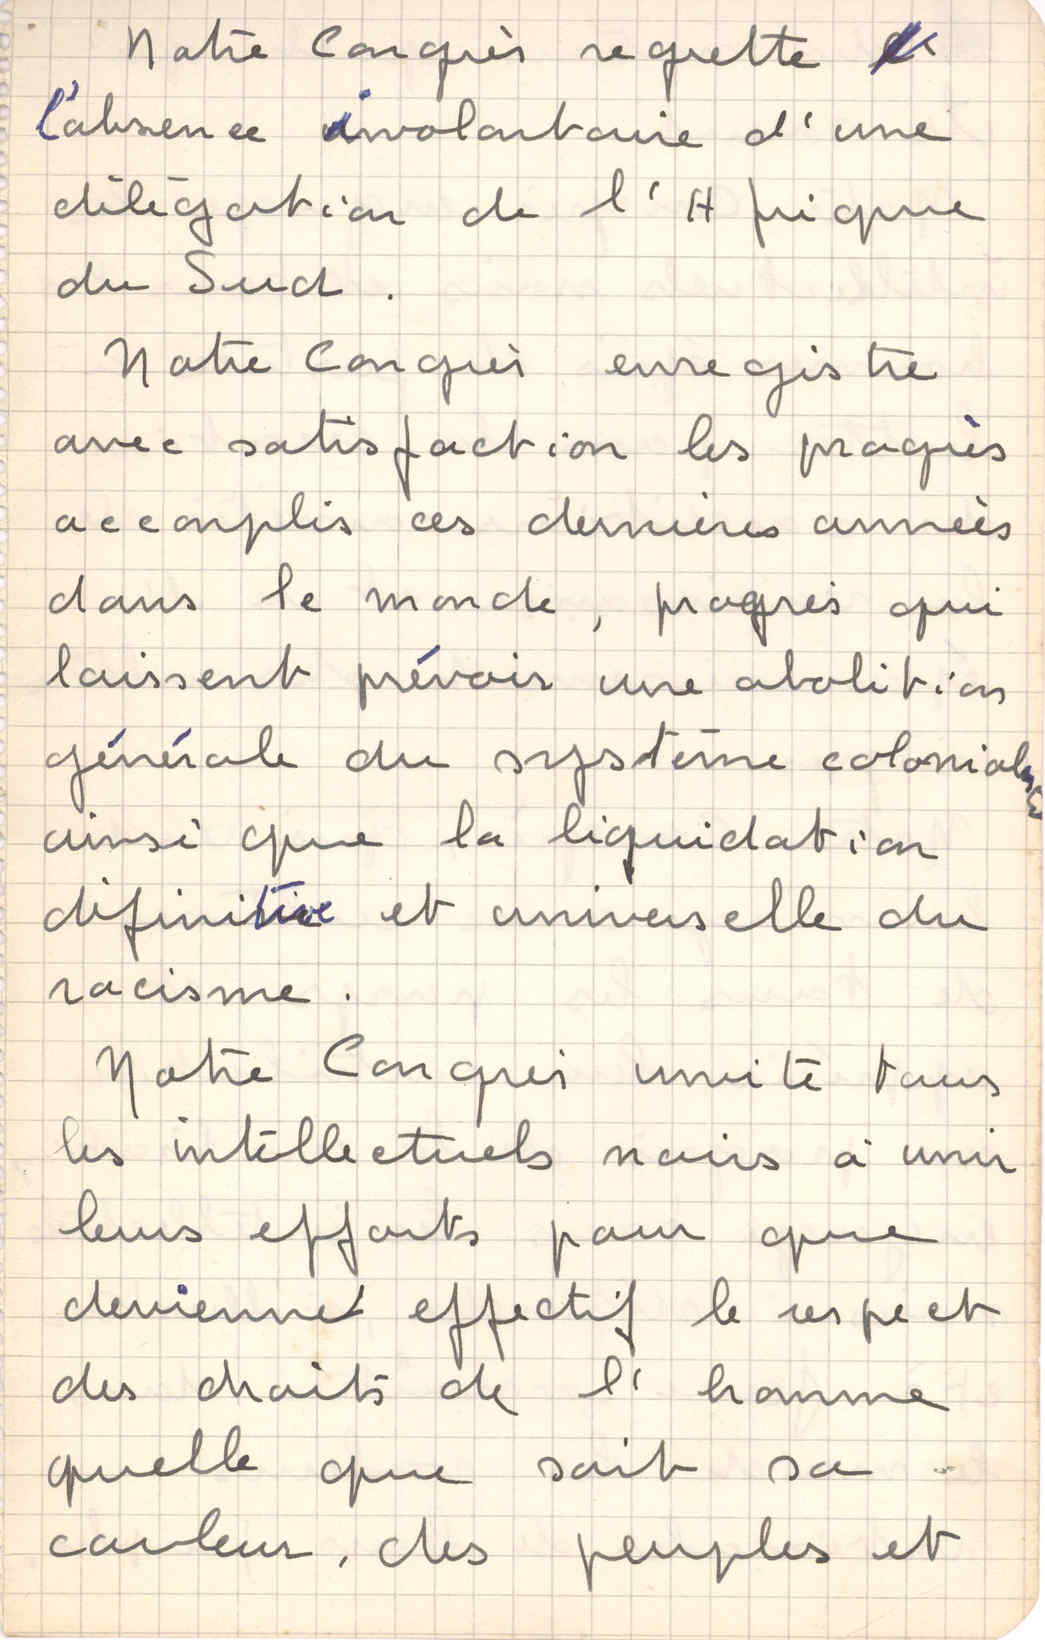 Notre Congrès regrette
l'absence involontaire d'une
délégation de l'Afrique
du Sud.
Notre Congrès enregistre
avec satisfaction les progrès
accomplis ces dernières années
dans le monde, progrès qui
laissent prévoir une abolition
générale du système colonial
ainsi que la liquidation
définitive et universelle du
racisme.
Notre Congrès invite tous
les intellectuels noirs à unir
leurs efforts pour que
devienne effectif le respect
des droits de l'homme
quelle que soit sa
couleur, des peuples et